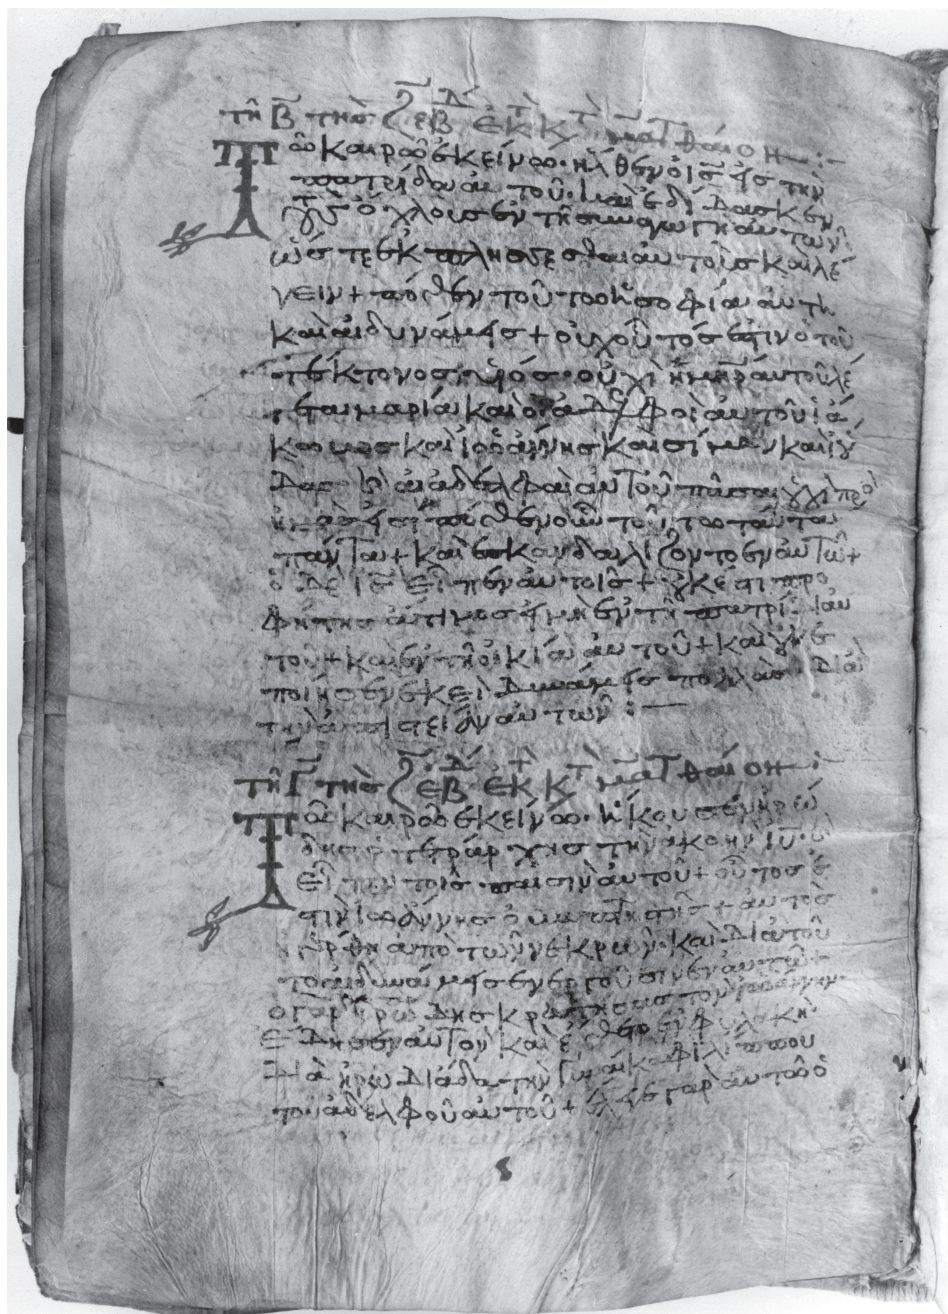 τῆ Β τῆς ζ ἑβδ ἐκ κτ ματθαῖον:
Τῶ καιρῶ ἐκείνω. ἦλθεν ὁ ις εἰς τὴν
πατρίδα αὐτοῦ. καὶ ἐδίδασκεν
ὄχλους ἐν τῆ συναγωγῆ αὐτῶν.
ὥστε ἐκπλήσσεσθαι αὐτοῖς καὶ λέ
γειν + πόθεν τούτω ἡ σοφία αὐτη
καὶ αἱ δυνάμεις + οὐχ οὗτός ἐστιν ὁ τοῦ
τέκτονος υἱός. οὐχὶ ἡ μηρ αὐτοῦ λέ
γεται μαρία καὶ οἱ ἀδελφοὶ αὐτοῦ ἰά
κωβος καὶ ἰωάννης καὶ σίμων καὶ ἰού
δας. κ αἱ ἀδελφαὶ αὐτοῦ πᾶσαι οὐχὶ πρὸ
ἡμᾶς εἰσι πόθεν οὖν τούτω ταῦτα
πάντα + καὶ ἐσκανδαλίζοντο ἐν αὐτῶ +
ὁ δὲ ις εἶπεν αὐτοῖς + οὐκ ἔστι προ
φήτης ἄτιμος εἰ μὴ ἐν τῆ πατρίδι αὐ
τοῦ + καὶ ἐν τῆ οἰκία αὐτοῦ + καὶ οὐκ ἐ
ποίησεν ἐκεῖ δυνάμεις πολλὰς διὰ
τὴν ἀπιστείαν αὐτῶν:—
τῆ Γ τῆς ζ ἑβδ ἐκ κτ ματθαῖον:
Τῶ καιρῶ ἐκείνω. ἤκουσεν ἡρώ
δης ὁ τετράρχης τὴν ἀκοὴν ιυ. κ
εἶπεν τοῖς παισὶν αὐτοῦ + οὗτος ἐ
στὶν ἰωάννης ὁ βαπτιστής + αὐτὸς
ἠγέρθη ἀπὸ τῶν νεκρῶν. καὶ διὰ τοῦ
το αἱ δυνάμεις ἐνεργοῦσιν ἐν αὐτῶ +
ὁ γὰρ ἡρώδης κρατήσας τὸν ἰωάννην
ἔδησεν αὐτὸν καὶ ἔθετο ἐν φυλακῆ.
διὰ ἡρωδιάδα τὴν γυναῖκα φιλίππου
τοῦ ἀδελφοῦ αὐτοῦ + ἔλεγε γὰρ αὐτῶ ὁ